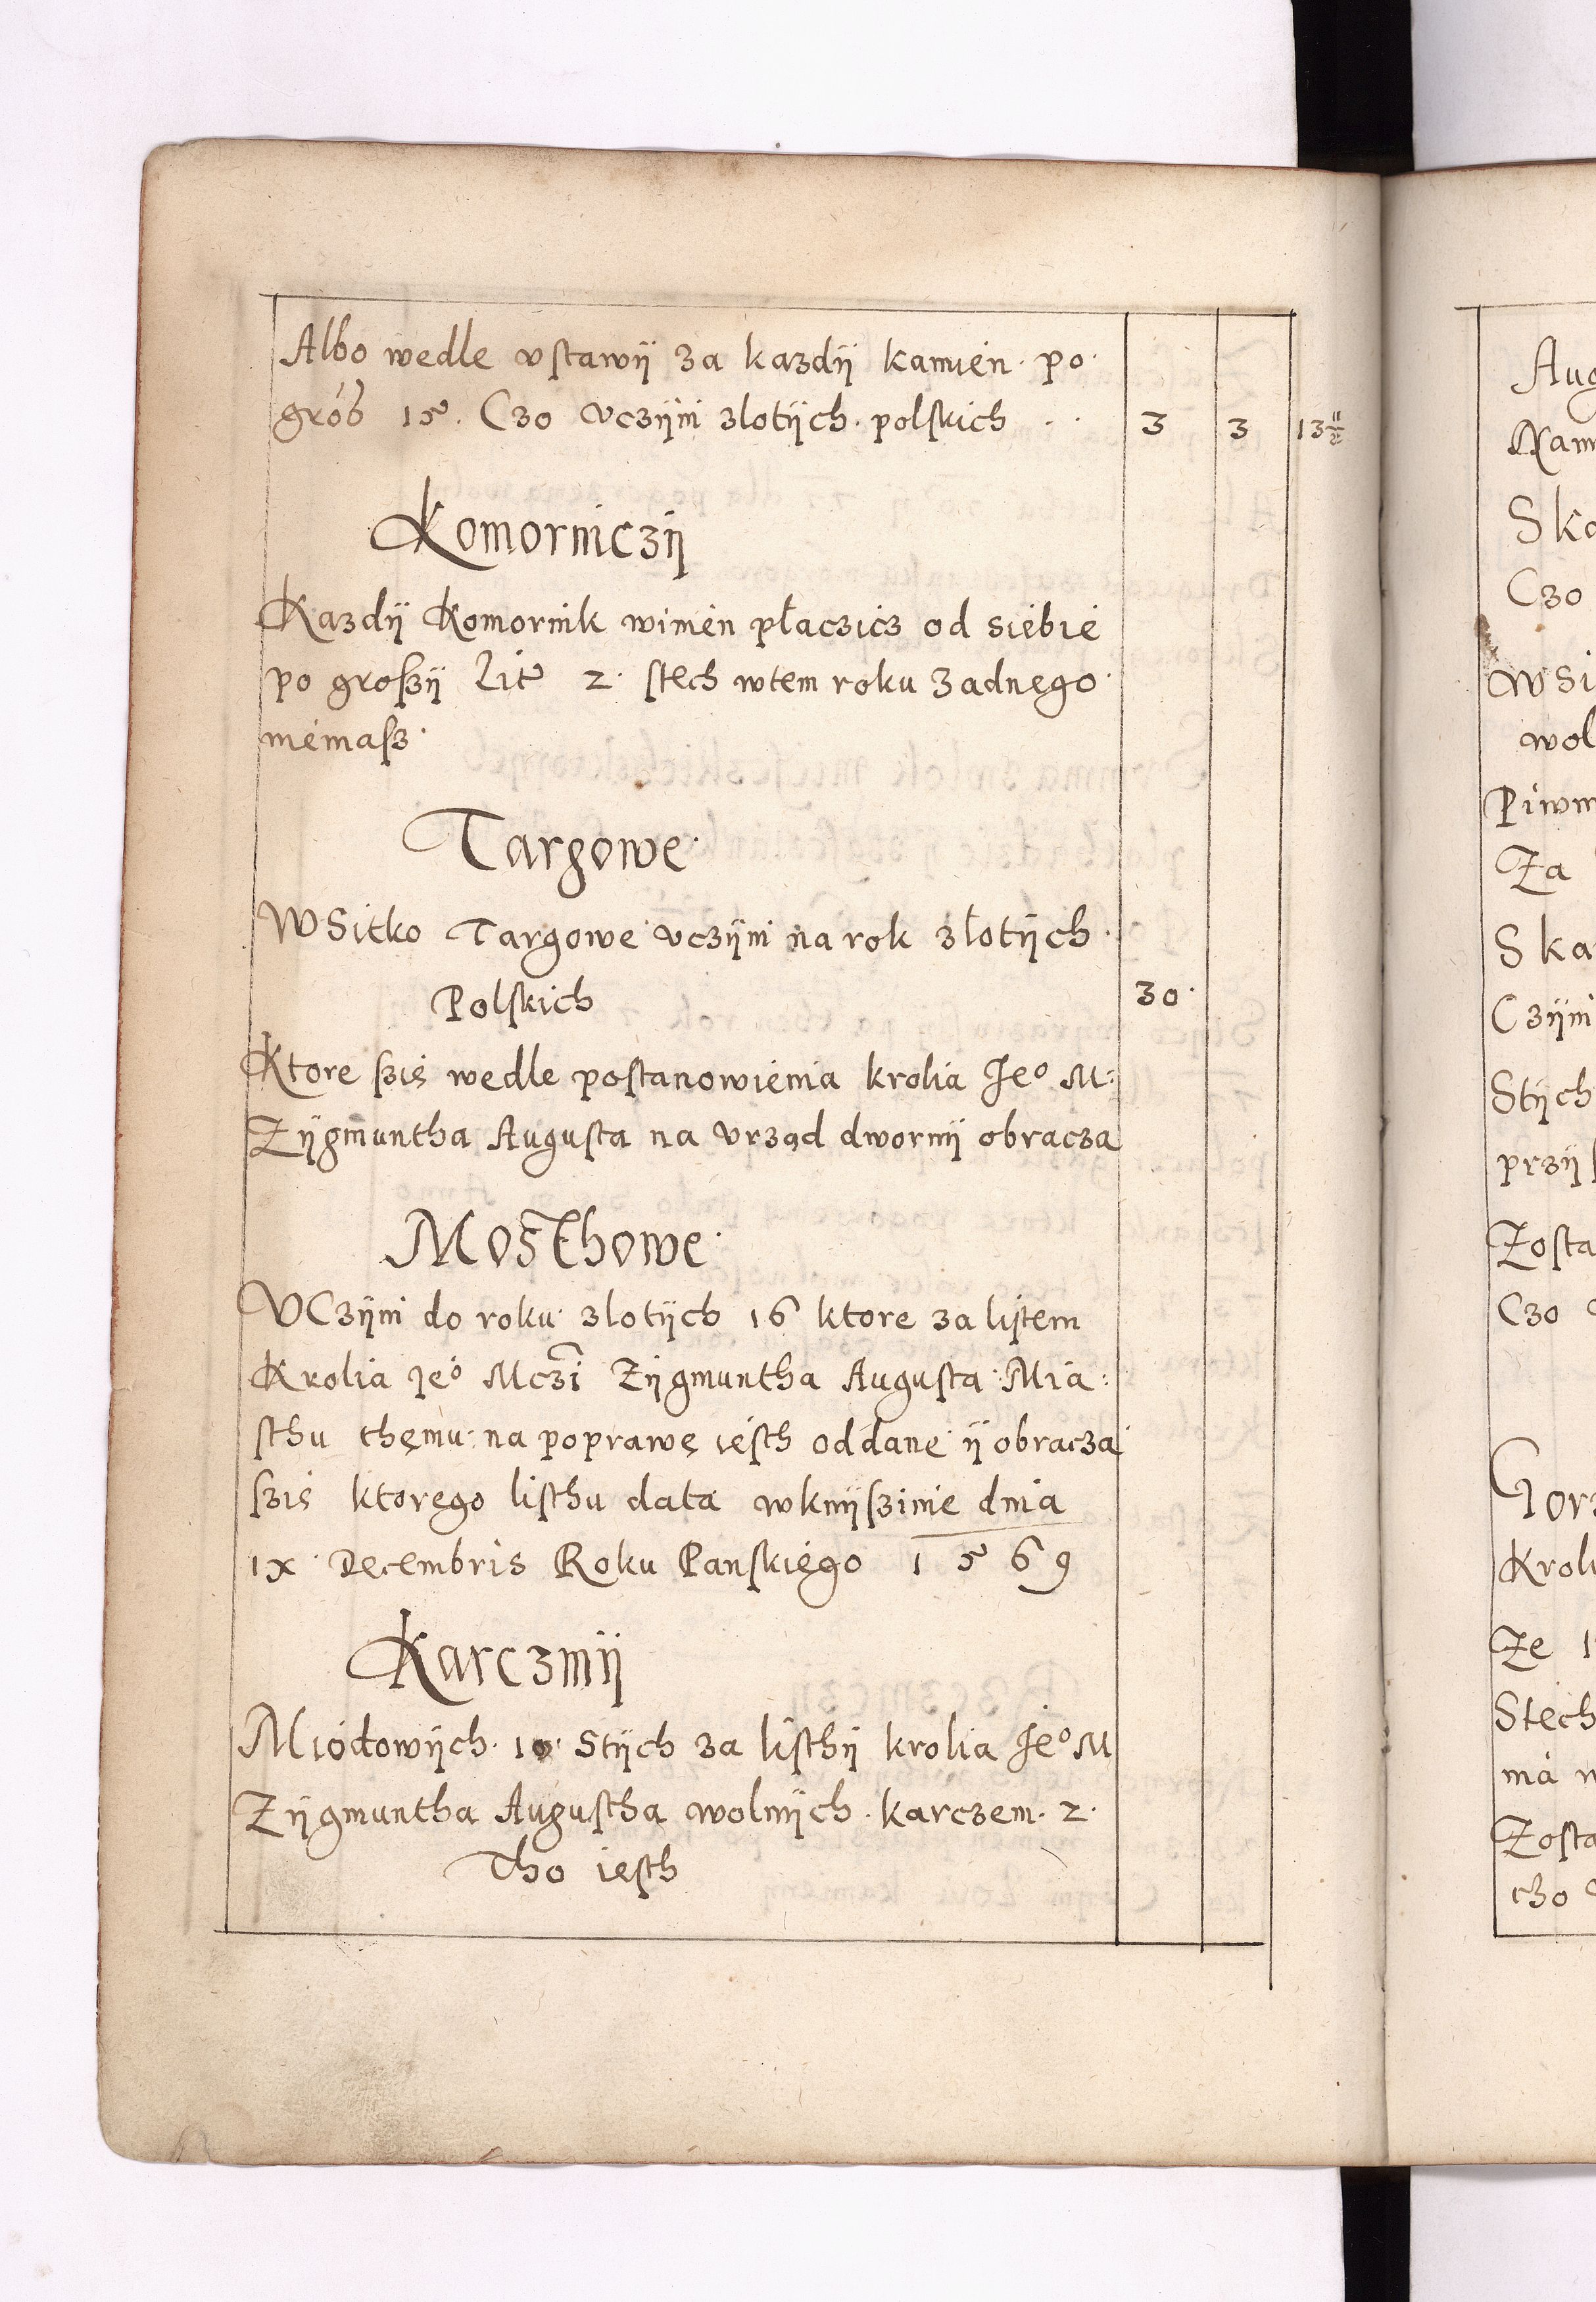 Albo wedle vstawÿ za kazdÿ kamien · po·
groß 15. Czo vczÿni zlotÿch · polskich · · 3 3 13
Komorniczÿ
Kazdÿ Komornik winien płaczicz od siebie
po groszÿ Lit 2· stech wtem roku zadnego·
niemasz·
Targowe·
WSitko Targowe vczÿni na rok złotÿch·
Polskich 30·
Ktore szię wedle postanowienia krolia Jeº M:
Zÿgmuntha Augusta na vrząd dwornÿ obracza
Mosthowe·
VCzÿni do roku· zlotÿch 16 ktore za listem
Krolia Jeº Mczi Zÿgmuntha Augusta· Mia:
sthu themu· na poprawę iesth oddane· ÿ obracza
szię ktorego listhu data wknÿszinie dnia
1x· Decembris Roku Panskiego 1569
Karczmÿ
Miodowÿch· 10· Stÿch za listhÿ krolia Jeº M
Zÿgmuntha Augustha wolnÿch · karczem· 2·
Tho iesth
Aug
Kam
Ska
Czo
WSi
wol
Piwn
Za
Ska
Czÿni
Stÿch
przÿ
Zosta
Czo
Gorz
Kroli
Ze 1
Stech
ma
Zosta
czo